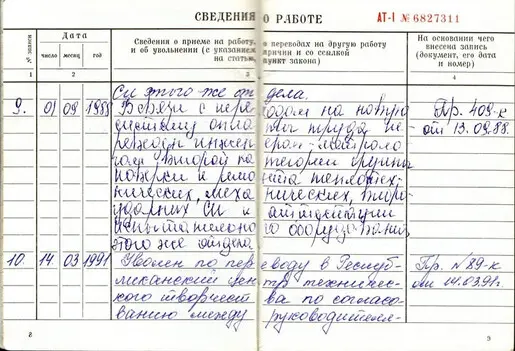 СВЕДЕНИЯ О РАБОТЕ
АТ-I № 6827311
№ записи
Дата
число месяц год
Сведения о приеме на работу, о переводах на другую работу
и об увольнении (с указанием причин и со ссылкой
на статью, пункт закона)
На основании чего
внесена запись
(документ, его дата
и номер)
1 2 3 4
СИ этого же отдела.
9. 01 09 1988 В связи с переходом на новую
систему оплаты труда пе-
реведен инженером-метроло-
гом второй категории группы
поверки и ремонта теплотех-
нических, механических,
ударных СИ и аттестации
испытательного оборудования,
этого же отдела
Пр. 409-к
от 13.09.88.
10. 14. 03 1991 Уволен по переводу в Республи-
канский центр техничес-
кого творчества по согласо-
ванию между руководителя-
Пр. №89-к
от 14.03.91г.
8
9